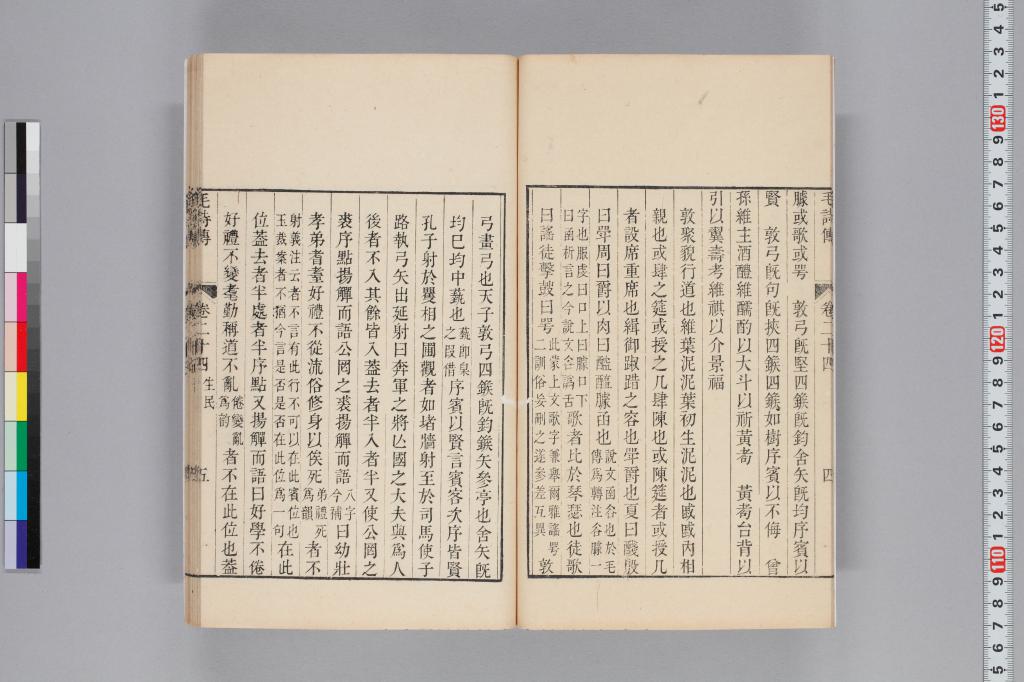 毛詩傳 卷二十四 四
臄或歌或咢 敦弓旣堅四鍭旣鈞舍矢旣均序賓以
賢 敦弓旣句旣挾四鍭四鍭如樹序賓以不侮 曾
孫維主酒醴維醹酌以大斗以祈黃耇 黃耇台背以
引以翼壽考維祺以介景福
敦聚貌行道也維葉泥泥葉初生泥泥也戚戚內相
親也或肆之筵或授之几肆陳也或陳筵者或授几
者設席重席也緝御踧踖之容也斝爵也夏曰醆殷
曰斝周曰爵以肉曰醓醢臄函也
說文函舌也於毛傳爲轉注谷臄一
字也服虔曰口上曰臄口下
曰函析言之今說文舌譌舌
歌者比於琴瑟也徒歌
曰謠徒擊鼓曰咢
此蒙上文歌字兼舉爾雅謠咢
二訓俗妄刪之遂參差互異
敦
弓畫弓也天子敦弓四鍭旣鈞鍭矢參亭也舍矢旣
均巳均中蓺也
蓺卽臬
之叚借
序賓以賢言賓客次序皆賢
孔子射於矍相之圃觀者如堵牆射至於司馬使子
路執弓矢出延射曰奔軍之將亾國之大夫與爲人
後者不入其餘皆入蓋去者半入者半又使公罔之
裘序點揚觶而語公罔之裘揚觶而語
八字
今補
曰幼壯
孝弟者耋好禮不從流俗修身以俟死
弟禮死
爲韻
者不
射義注云者不言有此行不可以在此賓位也
玉裁案者不猶今言是否是否在此位爲一句
在此
位蓋去者半處者半序點又揚觶而語曰好學不倦
好禮不變耄勤稱道不亂
倦變亂
爲韵
者不在此位也蓋
毛詩傳 卷二十四 生民 五